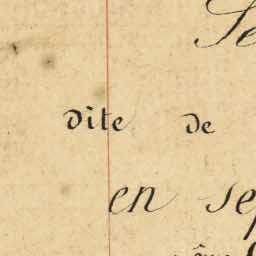 Se
dite de
en sep